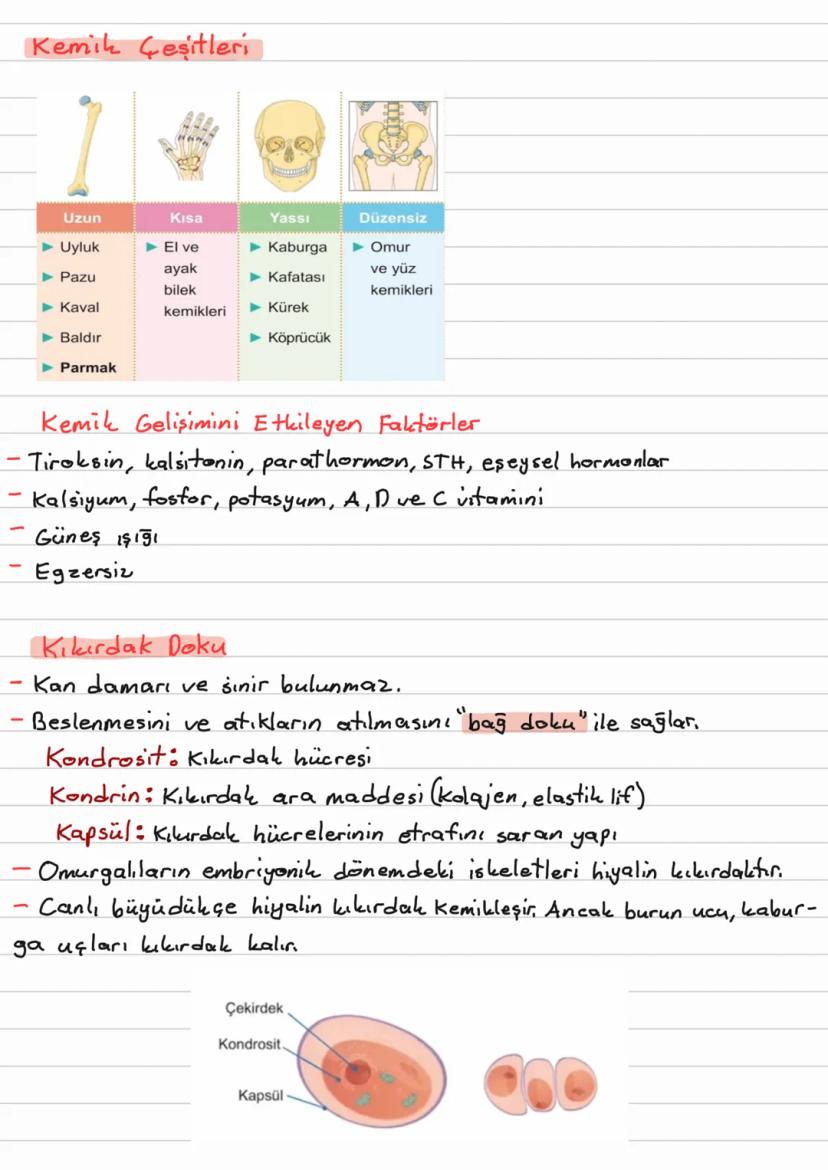 Kemik Çeşitleri
Uzun
Kısa
Yassı
Düzensiz
► Uyluk
► Pazu
► Kaval
► Baldır
► Parmak
► El ve
ayak
bilek
kemikleri
► Kaburga
► Kafatası
► Kürek
► Köprücük
► Omur
ve yüz
kemikleri
Kemik Gelişimini Etkileyen Faktörler
- Tiroksin, kalsitonin, parathormon, STH, eşeysel hormonlar
- Kalsiyum, fosfor, potasyum, A, D ve C vitamini
- Güneş ışığı
- Egzersiz
Kıkırdak Doku
- Kan damarı ve sinir bulunmaz.
- Beslenmesini ve atıkların atılmasını "bağ doku" ile sağlar.
Kondrosit: Kıkırdak hücresi
Kondrin: Kıkırdak ara maddesi (kolajen, elastik lif)
Kapsül: Kıkırdak hücrelerinin etrafını saran yapı
- Omurgalıların embriyonik dönemdeki iskeletleri hiyalin kıkırdaktır.
- Canlı büyüdükçe hiyalin kıkırdak kemikleşir. Ancak burun ucu, kabur-
ga uçları kıkırdak kalır.
Çekirdek
Kondrosit
Kapsül